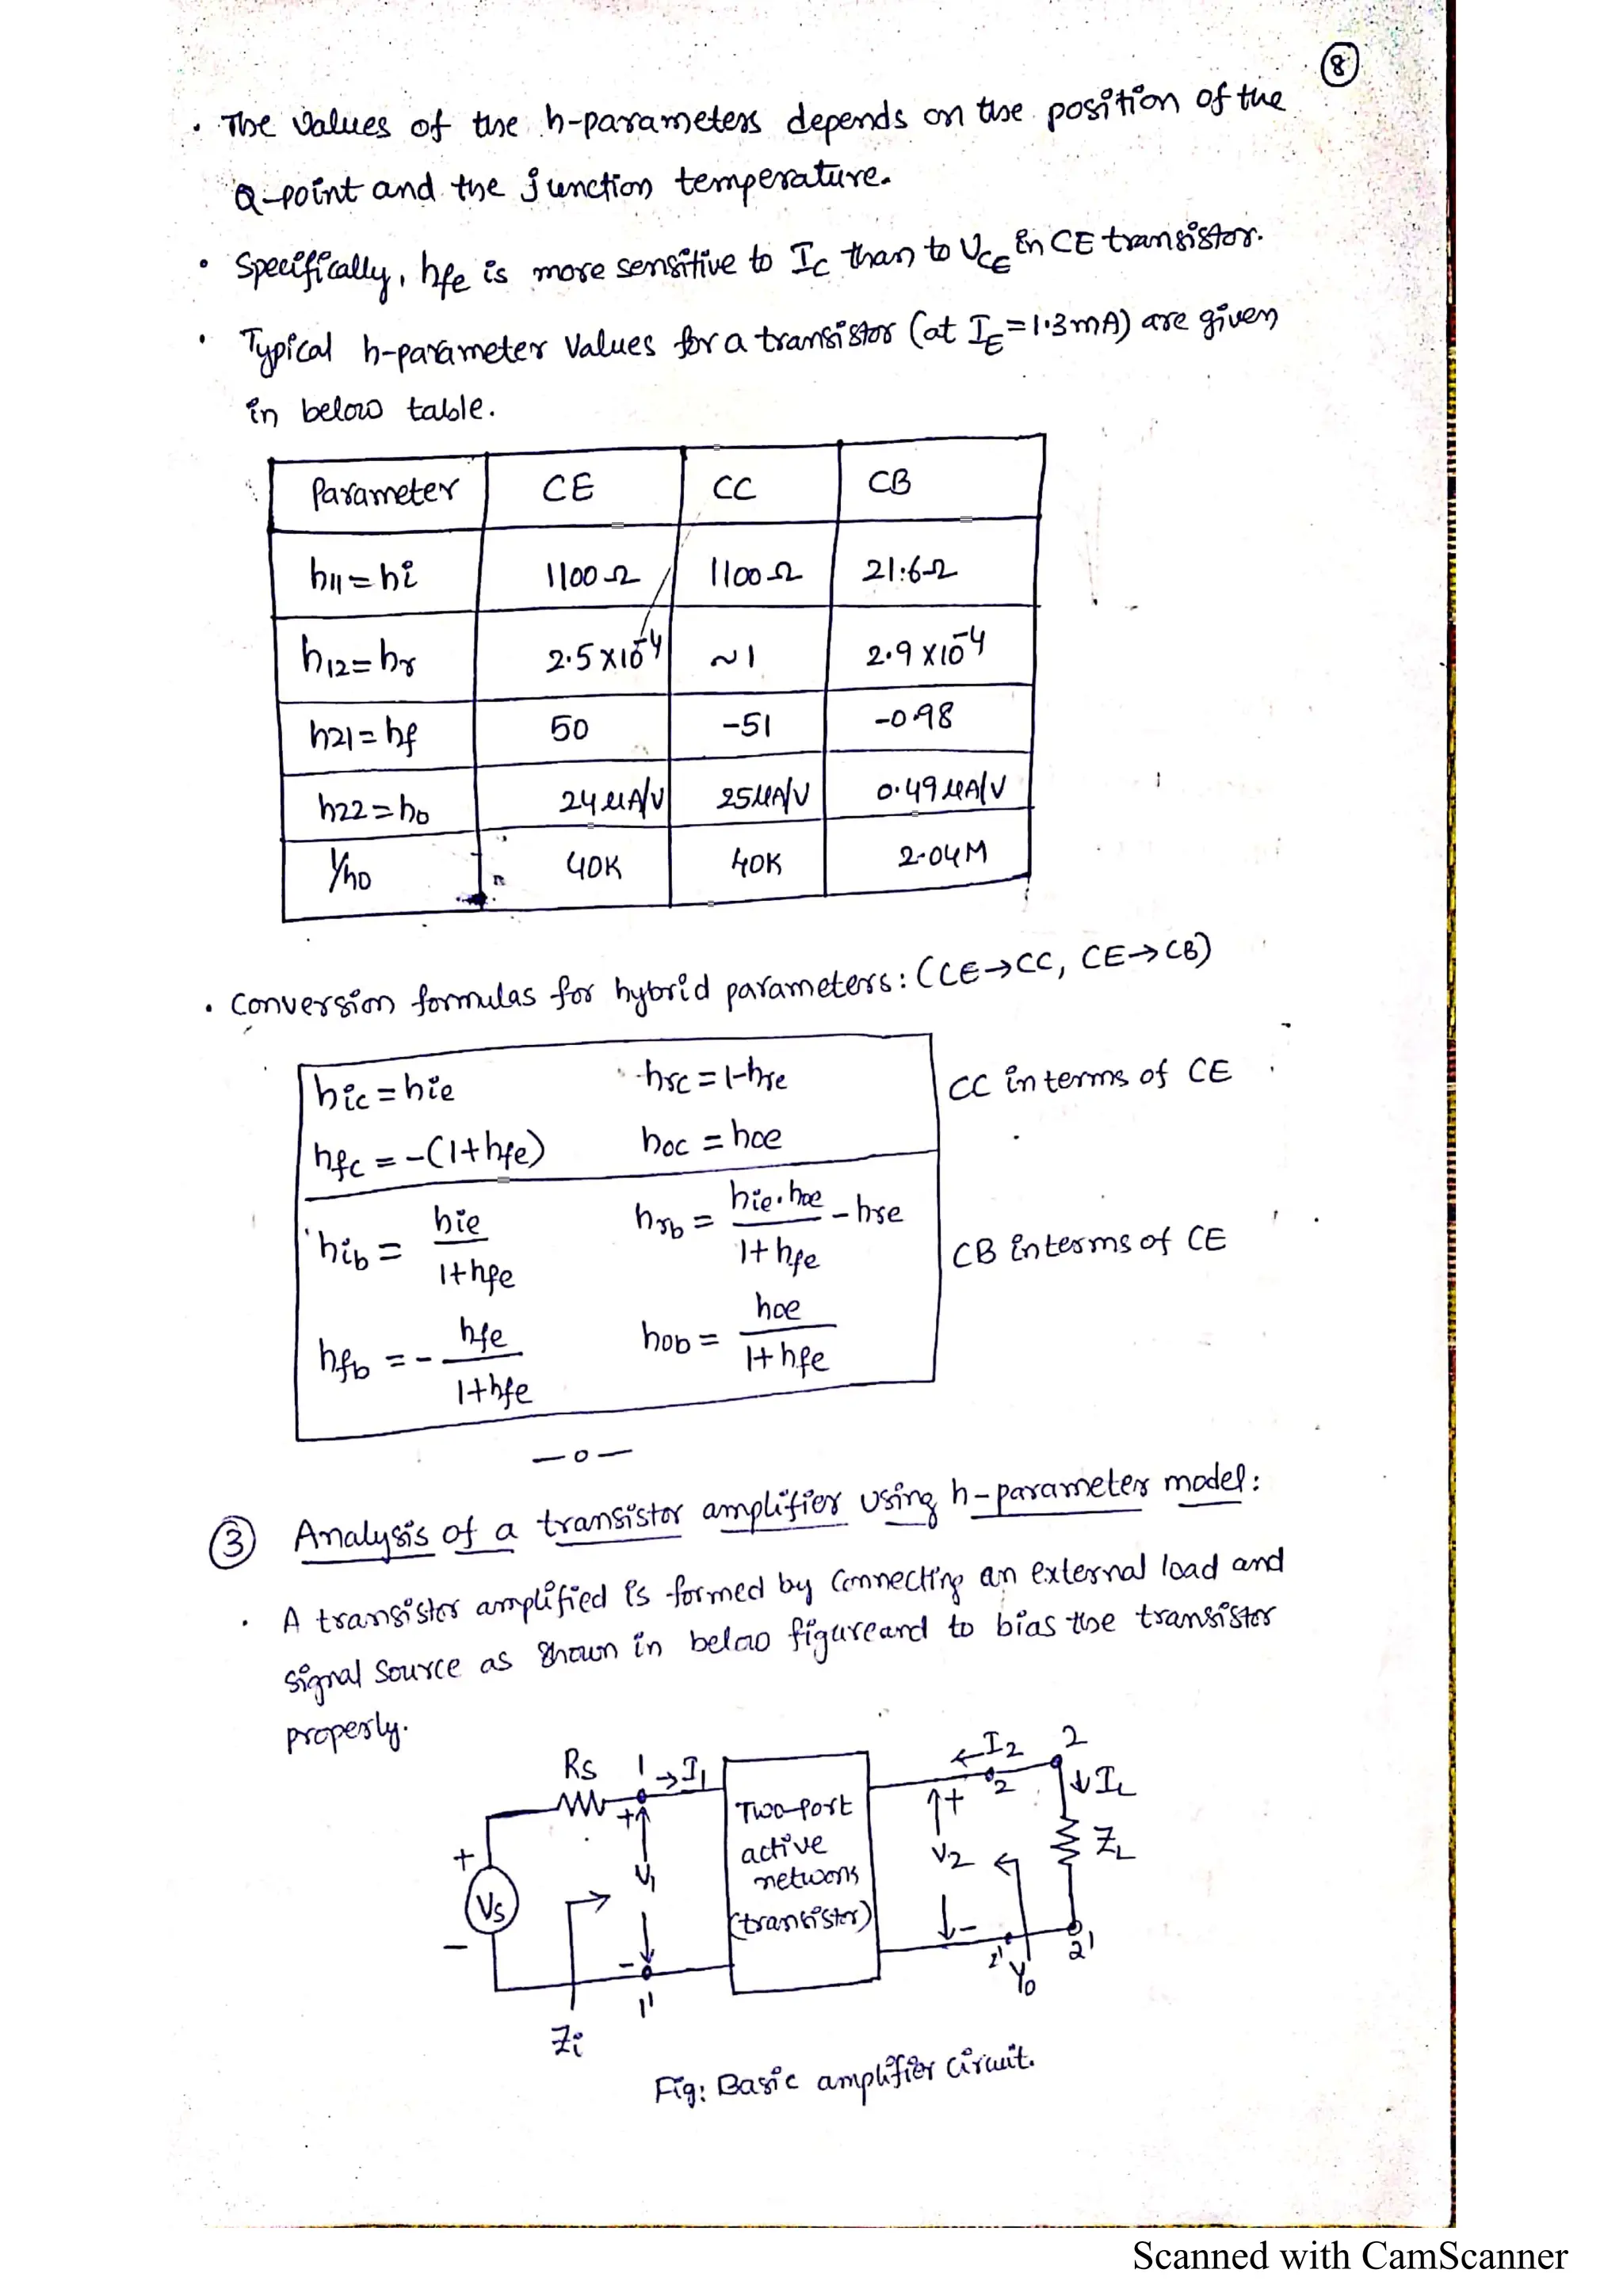 8
• The values of the h-parameters depends on the position of the
Q-point and the junction temperature.
• Specifically, hfe is more sensitive to Ic than to VCE in CE transistor.
• Typical h-parameter values for a transistor (at IE=1.3mA) are given
in below table.
Parameter CE CC CB
h11=hi 1100Ω 1100Ω 21.6Ω
h12=hr 2.5×10⁻⁴ ~1 2.9×10⁻⁴
h21=hf 50 -51 -0.98
h22=ho 24μA/V 25μA/V 0.49μA/V
1/ho 40K 40K 2.04M
• Conversion formulas for hybrid parameters: (CE→CC, CE→CB)
hic=hie hrc=1-hre CC in terms of CE
hfc=-(1+hfe) hoc=hoe
hib = hie/(1+hfe) hrb = hie.hoe/(1+hfe) - hre CB interms of CE
hfb = -hfe/(1+hfe) hob = hoe/(1+hfe)
—o—
③ Analysis of a transistor amplifier using h-parameter model:
• A transistor amplified is formed by connecting an external load and
signal source as shown in below figure and to bias the transistor
properly.
Rs 1 →I1 ←I2 2
2 ↓IL
+ + Two-port + ZL
active
Vs V1 network V2
(transistor)
- - - 2' 2'
1' Yo
Zi
Fig: Basic amplifier circuit.
Scanned with CamScanner